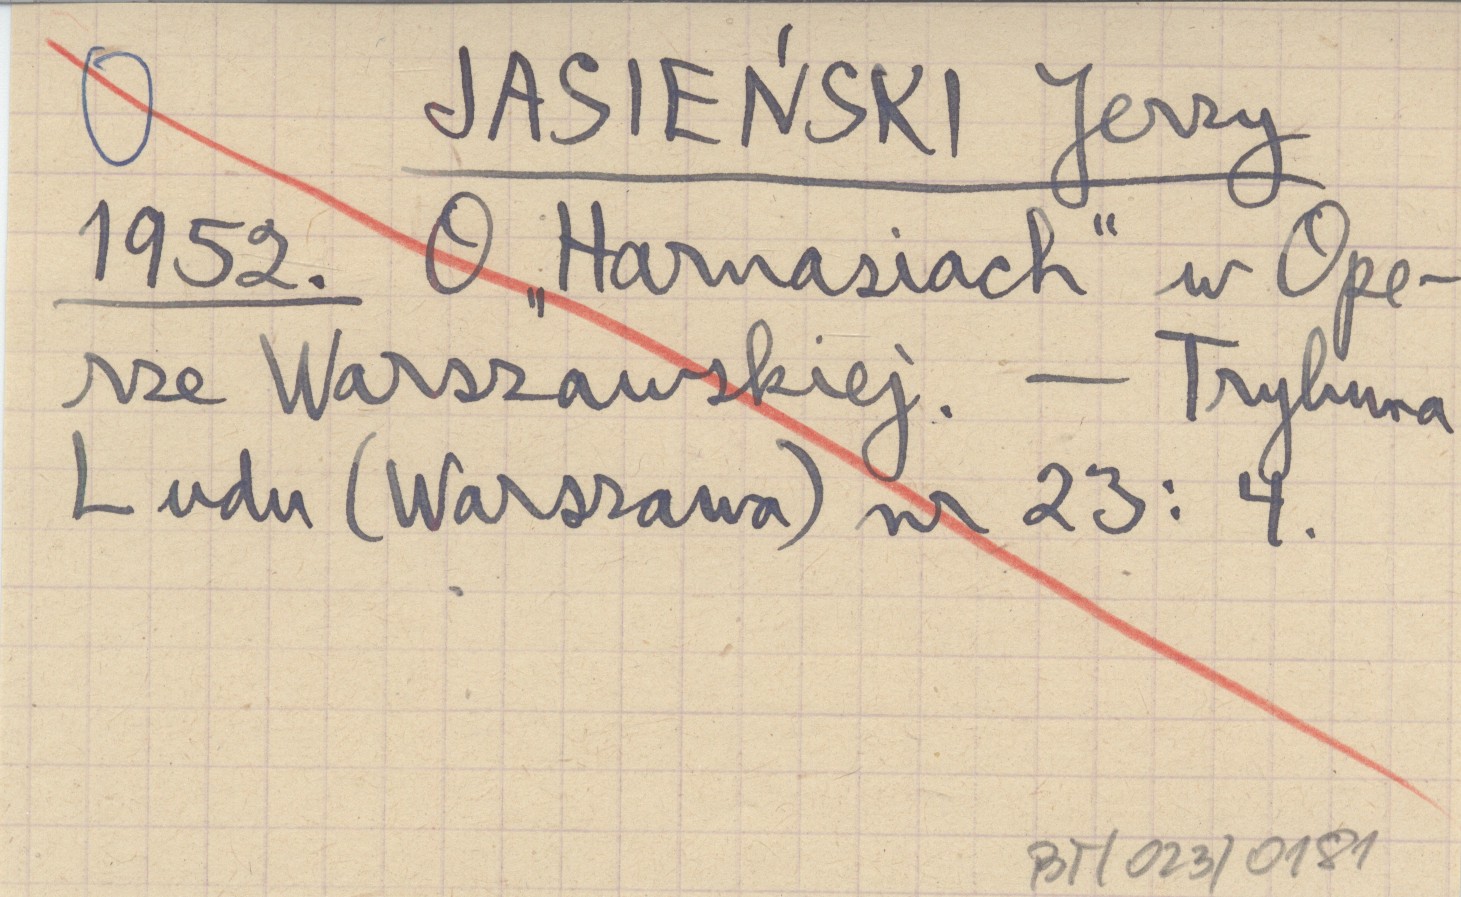 O JASIEŃSKI Jerzy
1952. O „Harnasiach“ w Ope-
rze Warszawskiej. — Trybuna
Ludu (Warszawa) nr 23: 4.
BT/023/0181